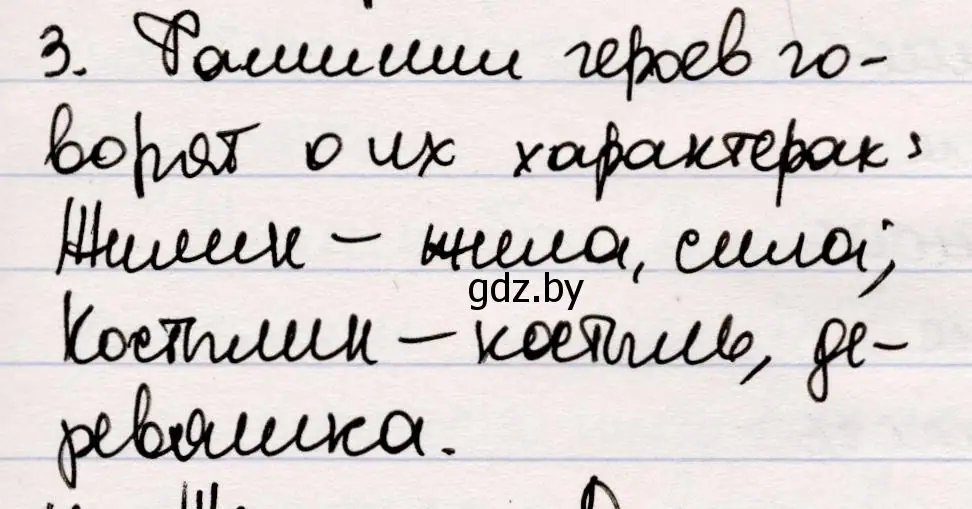 3. Фамилии героев го-
ворят о их характерах:
Жилин – жила, сила;
gdz.by
Костылин – костыль, де-
ревяшка.